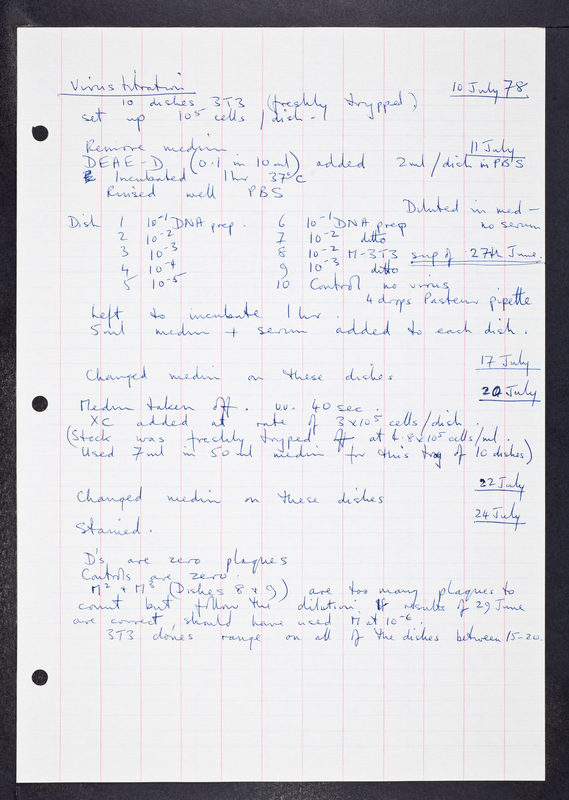 Virus titration
10 July 78
10 dishes 3T3 (freshly trypped)
set up 10⁵ cells / dish -
Remove medium.
11 July
DEAE-D (0.1 in 10 ml) added 2 ml / dish in PBS
Incubated 1 hr 37°C
Rinsed well PBS
Diluted in med - no serum
Dish 1 10⁻¹ DNA prep. 6 10⁻¹ DNA prep
2 10⁻² 7 10⁻² ditto
3 10⁻³ 8 10⁻² M-3T3 sup of 27th June.
4 10⁻⁴ 9 10⁻³ ditto
5 10⁻⁵ 10 Control no virus
4 drops Pasteur pipette
Left to incubate 1 hr.
5 ml medium + serum added to each dish.
17 July
Changed medium on these dishes
20 July
Medium taken off. u.v. 40 sec.
XC added at rate of 3 x 10⁵ cells / dish.
(Stock was freshly tryped at 6.8 x 10⁵ cells / ml.
Used 7 ml in 50 ml medium for this of 10 dishes)
22 July
Changed medium on these dishes
24 July
Stained.
D's are zero plaques
Controls are zero.
M² + M³ (Dishes 8 + 9) are too many plaques to
count but follow the dilution. If results of 29 June
are correct, should have used M at 10⁻⁶.
3T3 clones range on all of the dishes between 15-20.